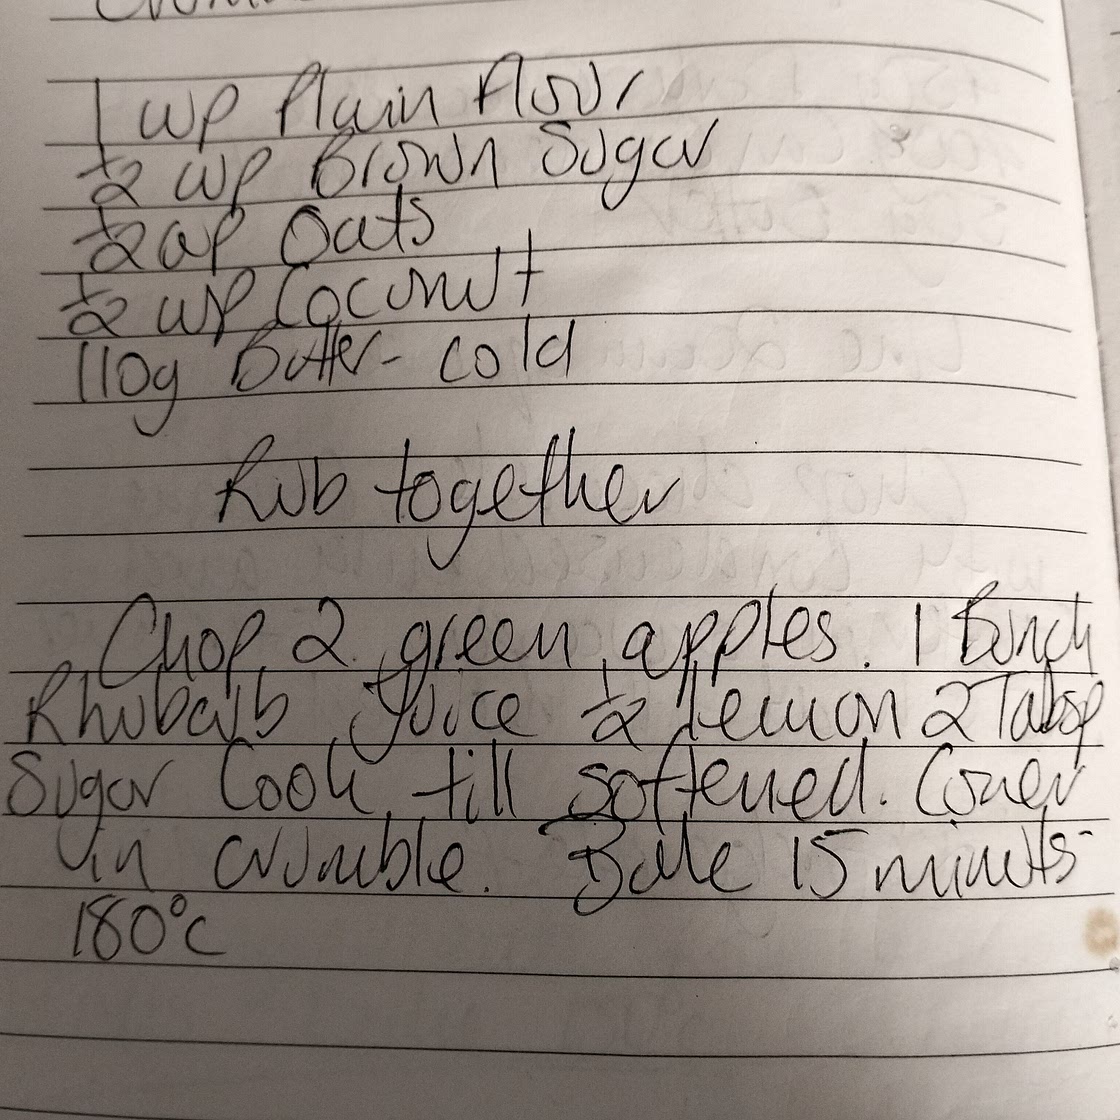 1 cup Plain Flour
1/2 cup Brown Sugar
1/2 cup Oats
1/2 cup Coconut
110g Butter - cold
Rub together
Chop 2 green apples. 1 Bunch
Rhubarb Juice 1/2 lemon 2 Tabsp
Sugar Cook till softened. Cover
in crumble. Bake 15 minuts
180°C